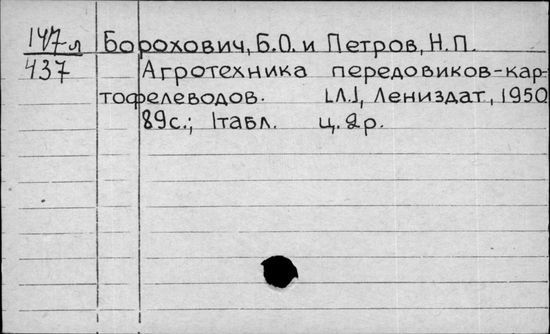 147л Борохович, Б.О. и Петров, Н.П.
437 Агротехника передовиков-кар-
тофелеводов. [Л.], Лениздат, 1950
89с.; 1табл. ц. 2р.